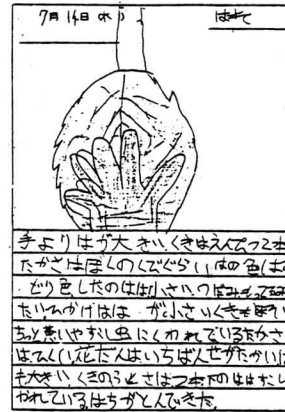 7月14日(水)
手よりはが大きい、くきはえんぴつ2本
たかさはぼくのくびぐらい はの色は
どり色 したのはは小さい つぼみもってる
たいひかげはは が小さいくきも
ちっと黒いやすし虫にくわれているたかさ
はひくい花だんはいちばんせがたかいは
も大きい くきのふとさは2本下のははすし
かれているはちがとんできた。